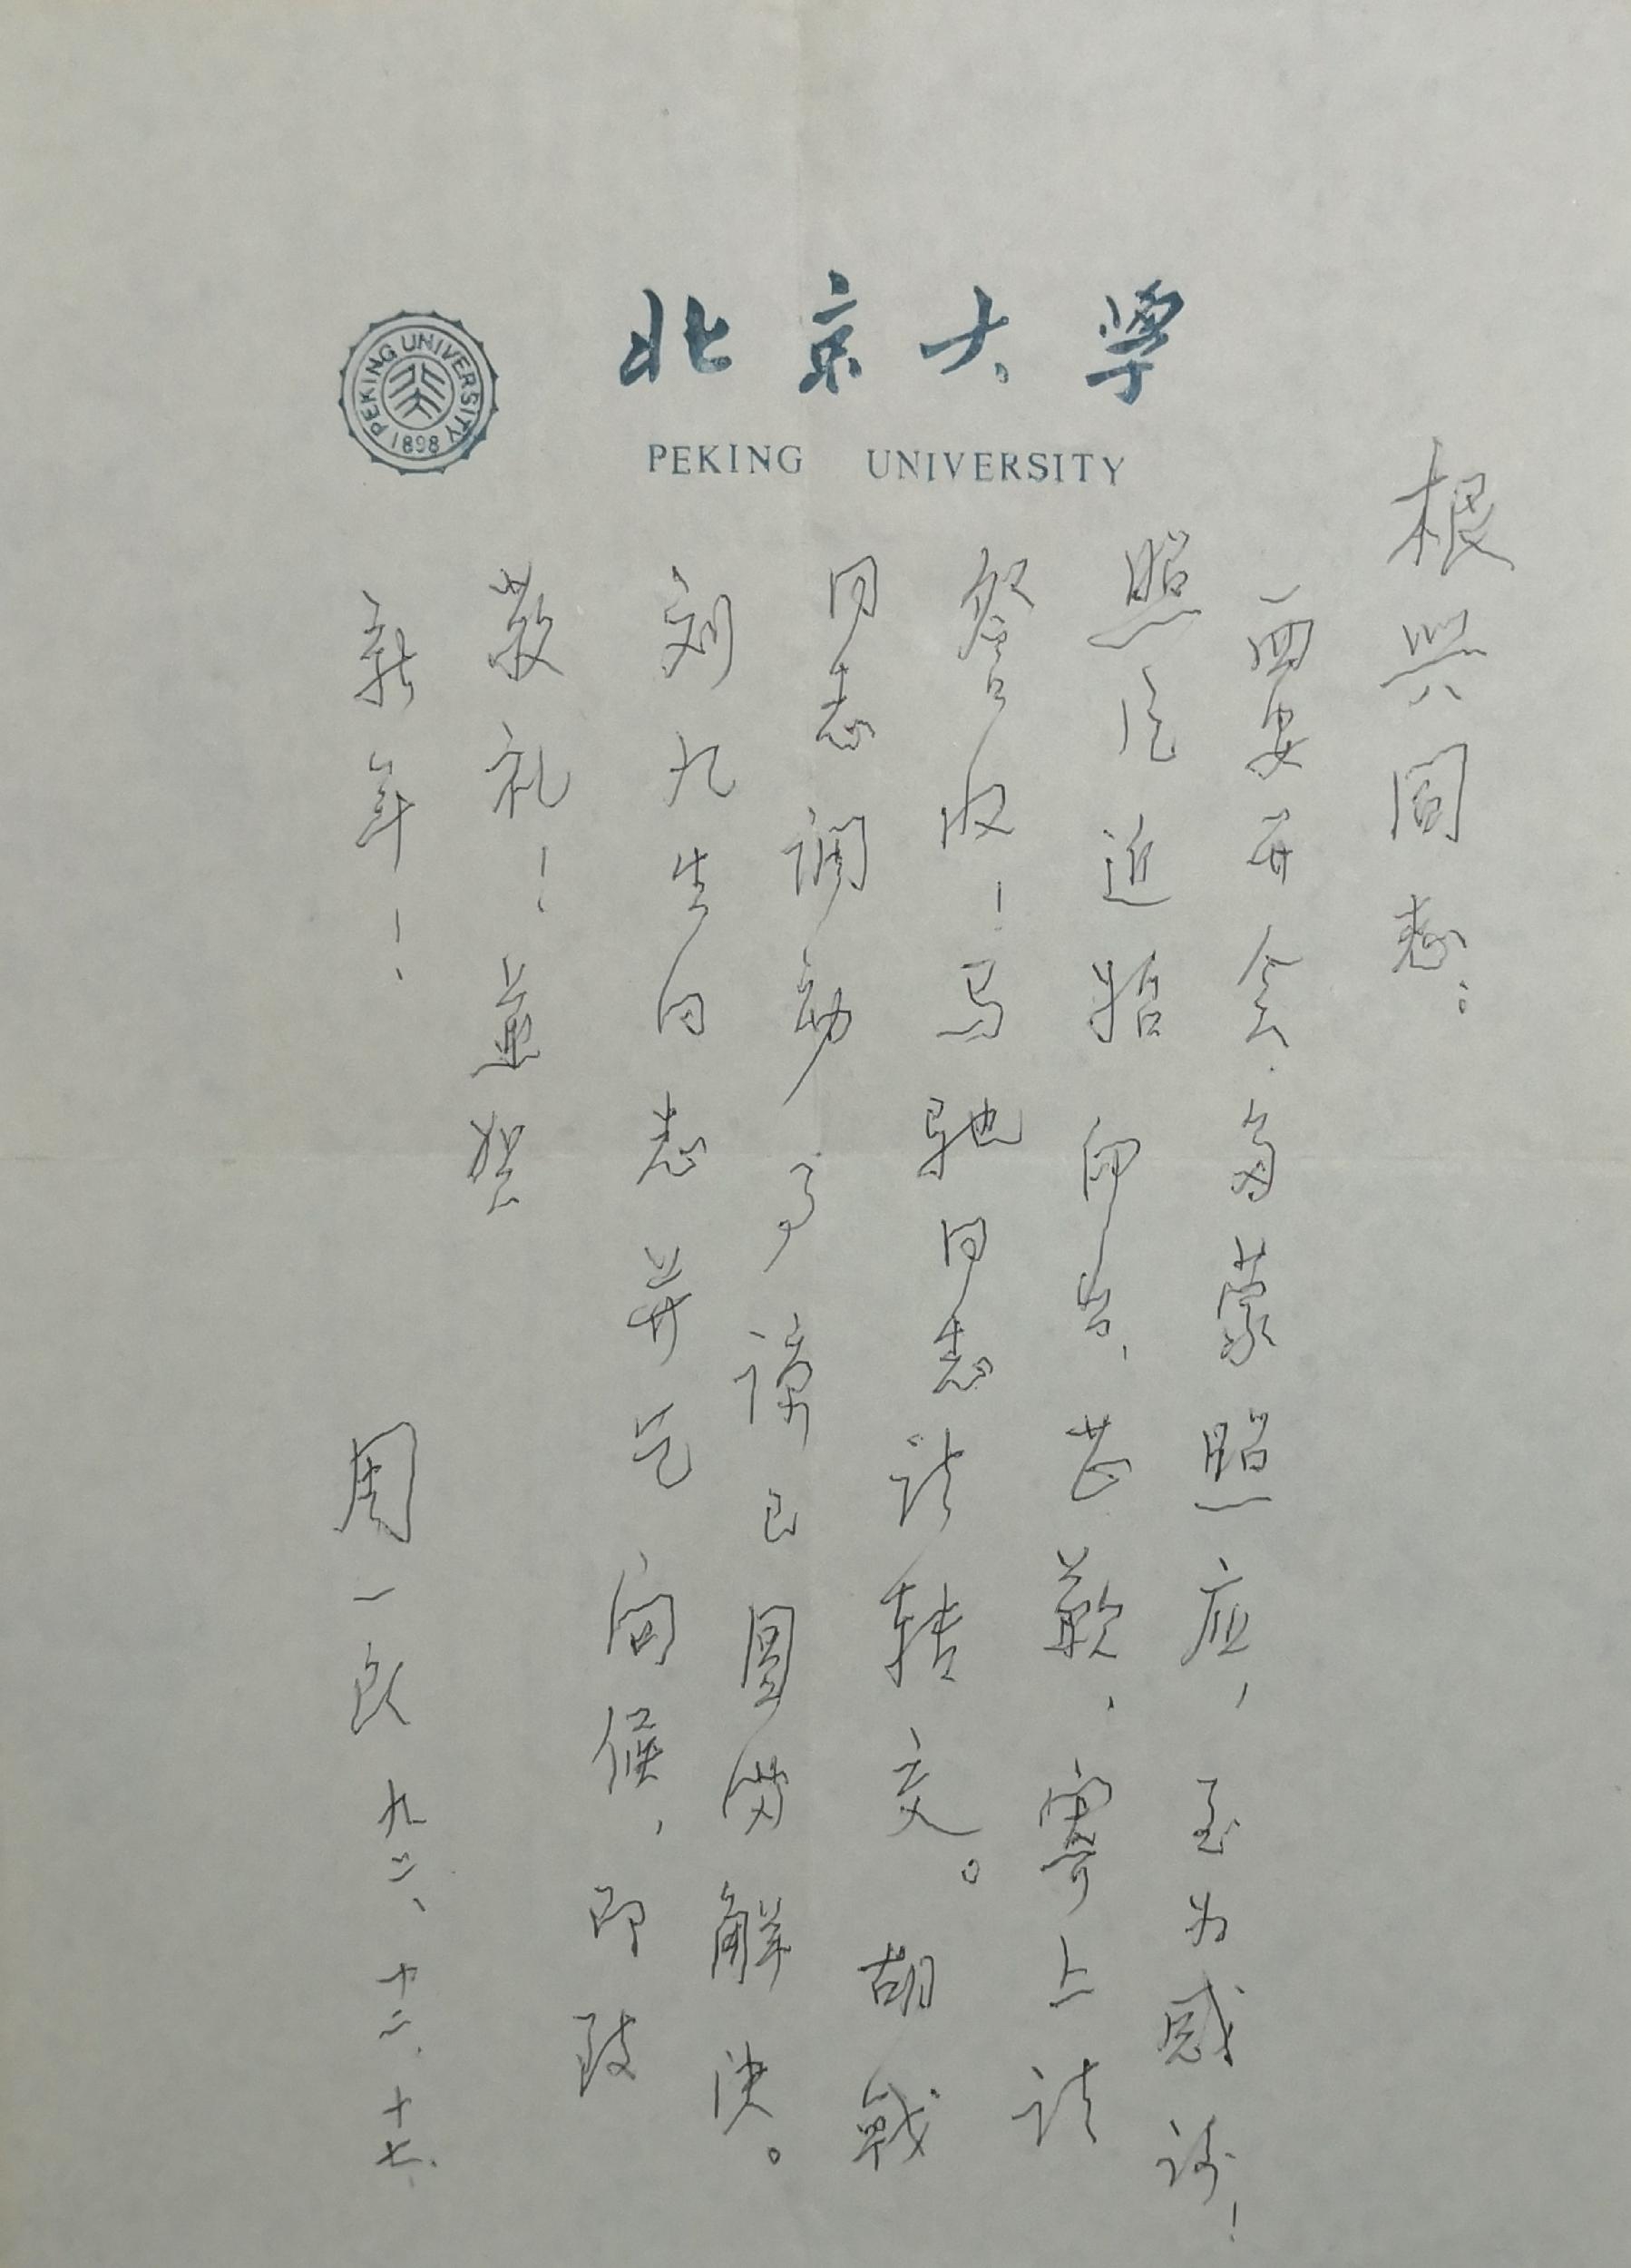 北京大学
PEKING UNIVERSITY
PEKING UNIVERSITY
1898
根兴同志：
西安开会，多蒙照应，至为感谢！
照片近始印出，甚歉，寄上请
詧收！马驰同志请转交。胡戟
同志调动事谅已圆满解决。
刘九生同志并乞问候，即致
敬礼！并贺
新年！
周一良 九二、十二、十七、